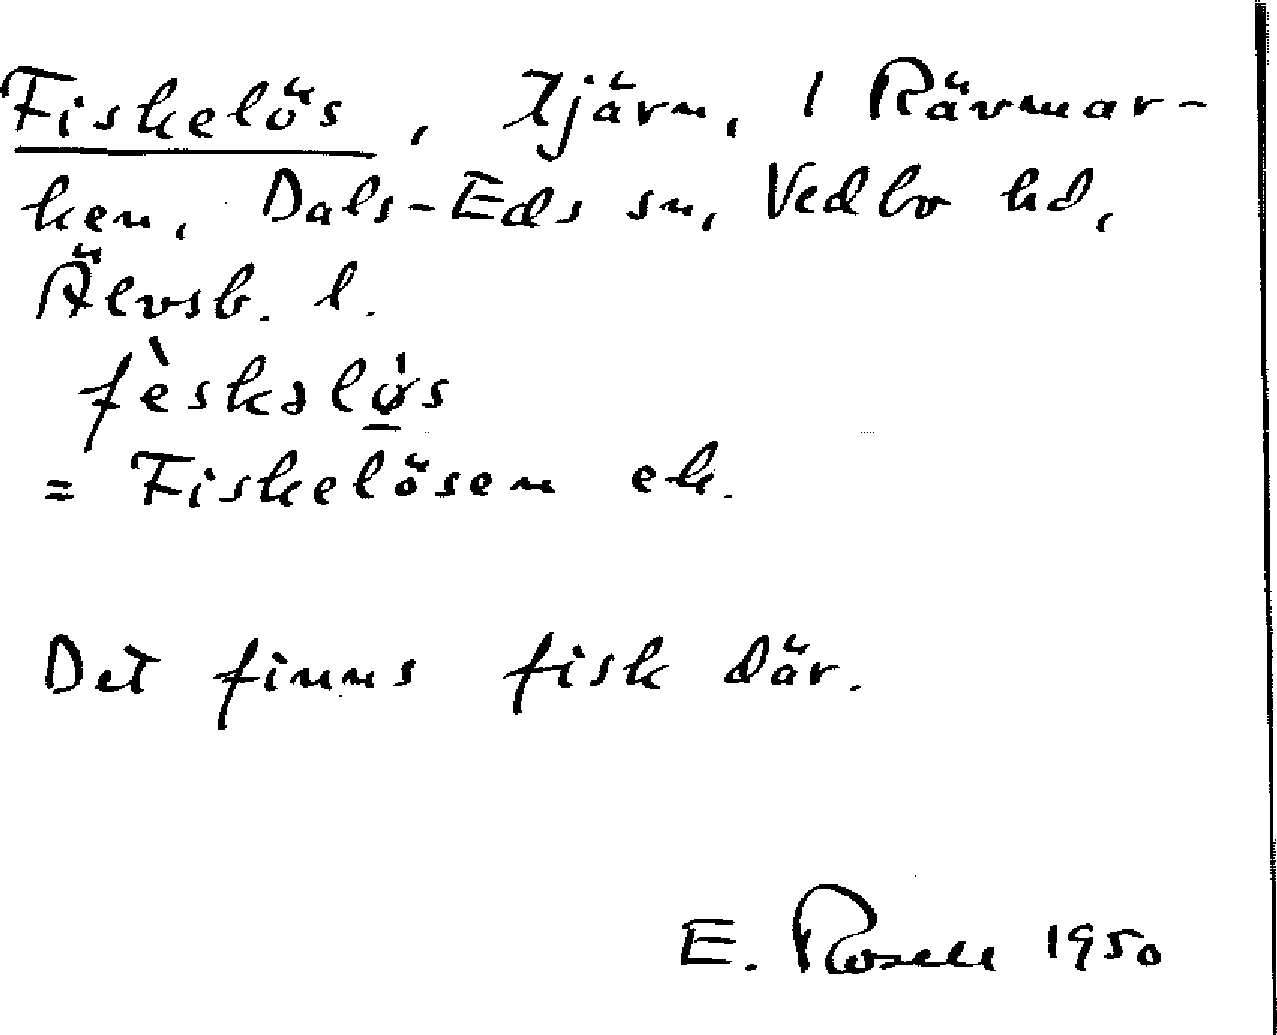 Fiskelös, tjärn, 1 Rävmar-
ken, Dals-Eds sn, Vedbo hd,
Älvsb. l.
fèskəlø̱̀s
= Fiskelösen ek.
Det finns fisk där.
E. Rosell 1950